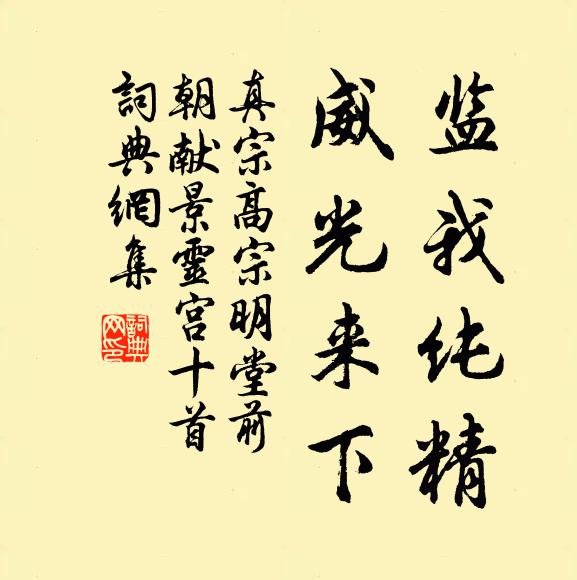 监我纯精
威光来下
真宗高宗明堂前
朝献景靈宫十首
詞典網集
詞典
网印